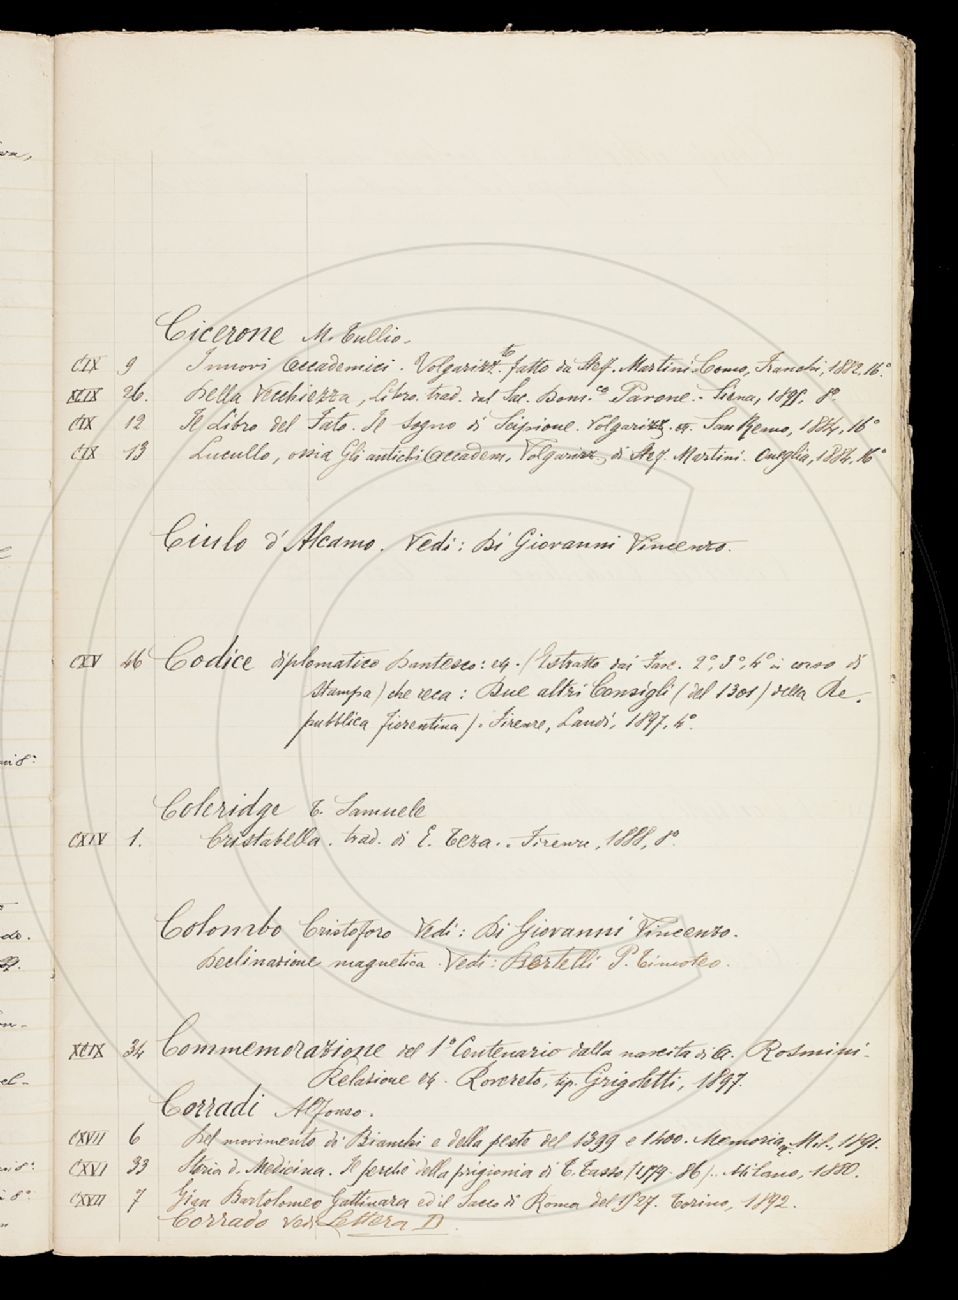 Cicerone M. Tullio.
CIX 9 I nuovi Accademici. Volgarizz.to fatto da Stef. Martini. Como, Franchi, 1882, 16°
XLIX 26. Della Vecchiezza, Libro. trad. dal Sac. Dom.co Pavone. - Siena, 8°.
CIX 12 Il Libro del Fato. Il Sogno di Scipione. Volgarizz. ec. San Remo, 1884, 16°
CIX 13 Lucullo, ossia Gli antichi Accadem. Volgarizz. di Stef. Martini. Oneglia, 1884, 16°
Ciulo d'Alcamo. Vedi: Di Giovanni Vincenzo.
CXV 46 Codice diplomatico Dantesco: ec. (Estratto dai Fasc. 2°, 3°, 4° in corso di
stampa) che reca: Due altri Consigli (del 1301) della Re-
pubblica fiorentina). Firenze, Landi, 1897, 4°.
Coleridge T. Samuele
CXIV 1. Cristabella. trad. di E. Teza. - Firenze, 1888, 8°.
Colombo Cristoforo Vedi: Di Giovanni Vincenzo.
Declinazione magnetica. Vedi: Bertelli P. Timoteo.
XCIX 34 Commemorazione del 1° Centenario dalla nascita di A. Rosmini -
Relazione ec. Rovereto, tip. Grigoletti, 1897.
Corradi Alfonso.
CXVII 6 Del movimento di Bianchi e della peste del 1399 e 1400. Memoria, Mil., 1891.
CXVI 33 Storia d. Medicina. Il perchè della prigionia di T. Tasso (1579-86). Milano, 1880.
CXVII 7 Gian Bartolomeo Gattinara ed il Sacco di Roma del 1527. Torino, 1892.
Corrado Vedi Lettera D.